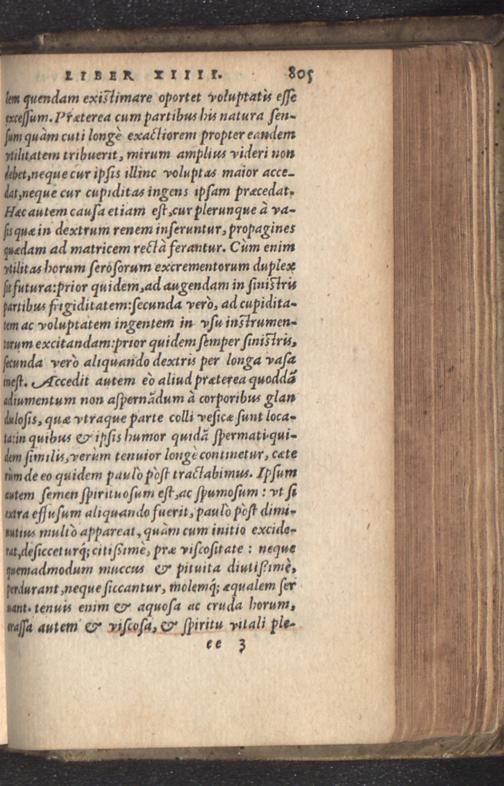 LIBER XIIII. 805
lem quendam existimare oportet voluptatis esse
excessum. Præterea cum partibus his natura sen-
sum quàm cuti longè exactiorem propter eandem
vtilitatem tribuerit, mirum amplius videri non
debet, neque cur ipsis illinc voluptas maior acce-
dat, neque cur cupiditas ingens ipsam præcedat.
Hæc autem causa etiam est, cur plerunque à va-
sis quæ in dextrum renem inseruntur, propagines
quædam ad matricem rectà ferantur. Cùm enim
vtilitas horum serosorum excrementorum duplex
sit futura: prior quidem, ad augendam in sinistris
partibus frigiditatem: secunda verò, ad cupidita-
tem ac voluptatem ingentem in vsu instrumen-
torum excitandam: prior quidem semper sinistris,
secunda verò aliquando dextris per longa vasa
inest. Accedit autem eò aliud præterea quoddã
adiumentum non aspernãdum à corporibus glan
dulosis, quæ vtraque parte colli vesicæ sunt loca-
ta: in quibus & ipsis humor quidã spermati qui-
dem similis, verùm tenuior longè continetur, cæte
rùm de eo quidem paulò pòst tractabimus. Ipsum
autem semen spirituosum est, ac spumosum: vt si
extra effusum aliquando fuerit, paulò pòst dimi-
nutius multò appareat, quàm cum initio excide-
rat, desicceturq́; citissimè, præ viscositate: neque
quemadmodum muccus & pituita diutissimè,
perdurant, neque siccantur, molemq́; æqualem ser
uant. tenuis enim & aquosa ac cruda horum,
crassa autem & viscosa, & spiritu vitali ple-
ee 3